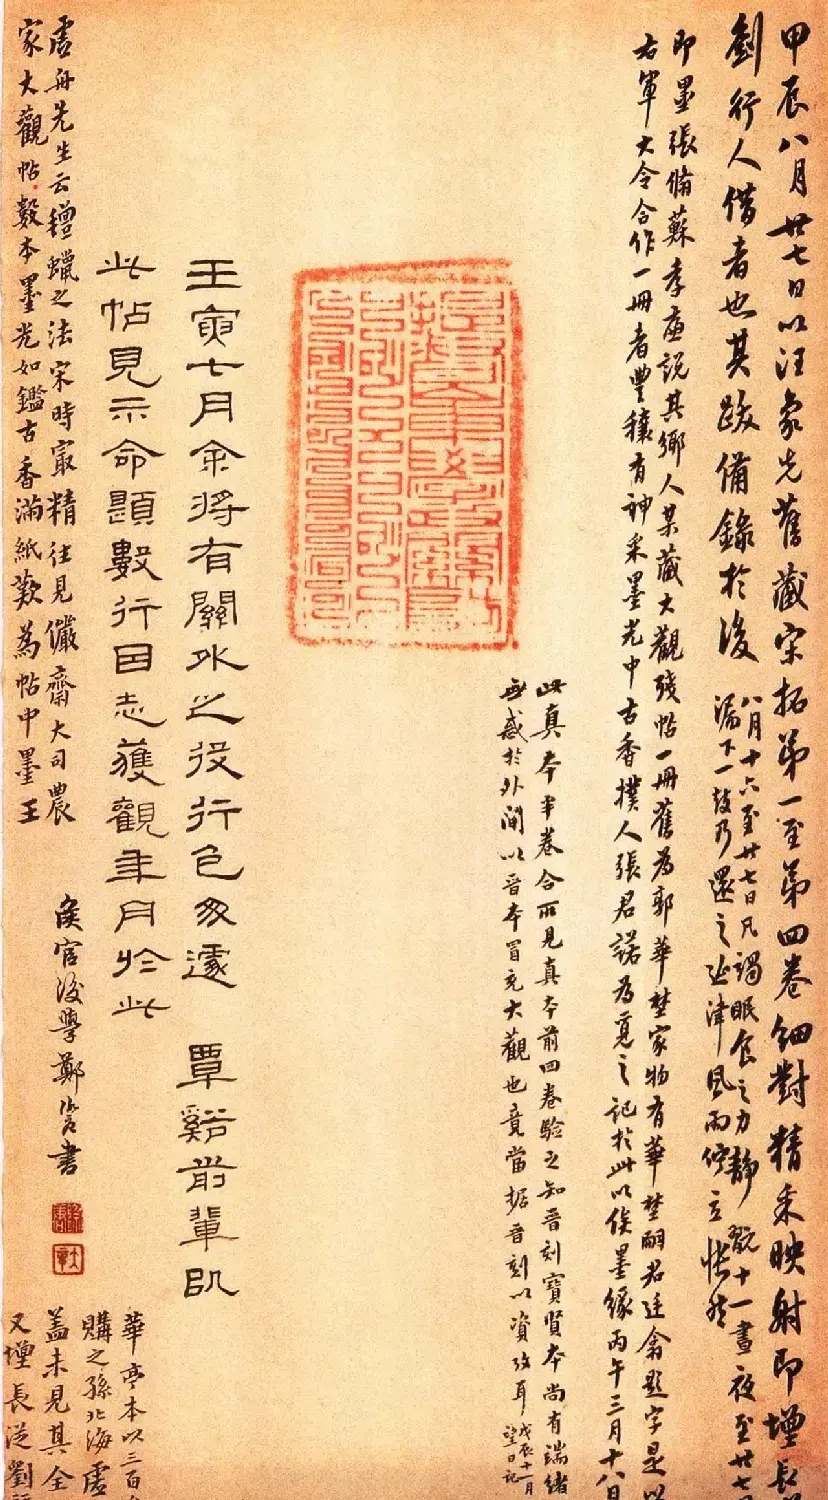 甲辰八月廿七日以汪象先舊藏宋拓第一至第四卷細對精采映射即增長
劉行人借者也其跋備錄於後
八月十六至廿七日凡竭眠食之力靜翫十一晝夜至廿七
漏下一鼓乃還之延津風雨佇立悵然
即墨張脩蘇孝廉說其鄉人某藏大觀殘帖一冊舊為郭華埜家物有華埜嗣君廷翕題字是以
右軍大令合作一冊者豐穰有神采墨光中古香撲人張君諾為覓之記於此以俟墨緣丙午三月十八日
此真本半卷合所見真本前四卷驗之知晉刻寶賢本尚有端緒
無惑於外間以晉本冒充大觀也竟當據晉刻以資攷耳
戊辰十一月
望日記
壬寅七月余將有關外之役行色匆遽 覃谿前輩以
此帖見示命題數行因志獲觀年月於此
虛舟先生云氊蠟之法宋時㝡精往見儼齋大司農
家大觀帖數本墨光如鑑古香滿紙歎為帖中墨王
侯官後學鄭書
華亭本以三百
購之孫北海虛
蓋未見其全
又增長從劉